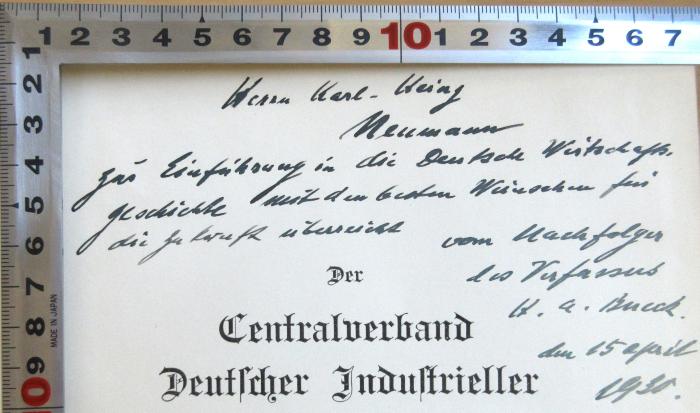 1 2 3 4 5 6 7 8 9 10 1 2 3 4 5 6 7
1 2 3 4 5 6 7 8 9 10
MADE IN JAPAN
Herrn Karl-Heinz
Neumann
zur Einführung in die Deutsche Wirtschafts-
geschichte mit den besten Wünschen für
die Zukunft überreicht vom Nachfolger
des Verfassers
H. A. Bueck.
den 15 april
1930.
Der
Centralverband
Deutscher Industrieller